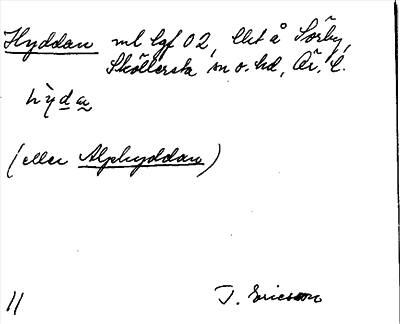 Hyddan ml lgf 02, lht å Sörby,
Sköllersta sn o. hd, Är. l.
hỳda
(eller Alphyddan)
11
T. Ericsson